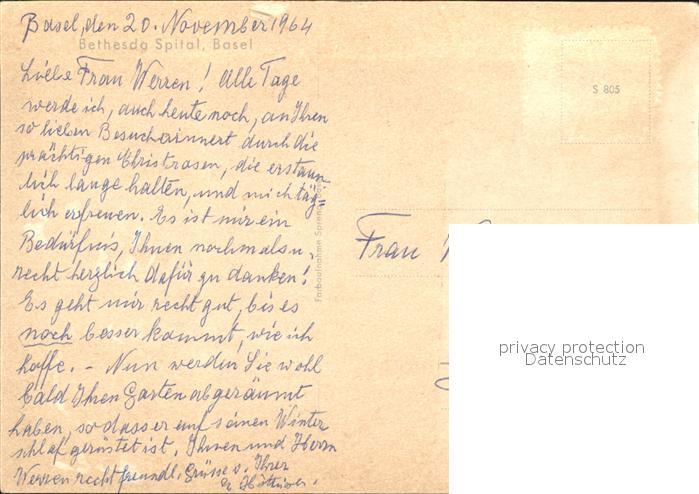 Basel, den 20. November 1964
Bethesda Spital, Basel
Liebe Frau Werren! Alle Tage
werde ich, auch heute noch, an Ihren
so lieben Besuch erinnert durch die
prächtigen Christrosen, die erstaun-
lich lange halten, und mich täg=
lich erfreuen. Es ist mir ein
Bedürfnis, Ihnen nochmals u.
recht herzlich dafür zu danken!
Es geht mir recht gut, bis es
noch besser kommt, wie ich
hoffe. – Nun werden Sie wohl
bald Ihren Garten abgeräumt
haben, so dass er auf seinen Winter
schlaf gerüstet ist. Ihnen und Herrn
Werren recht freundl. Grüsse v. Ihrer
Farbaufnahme
S 805
Frau
privacy protection
Datenschutz